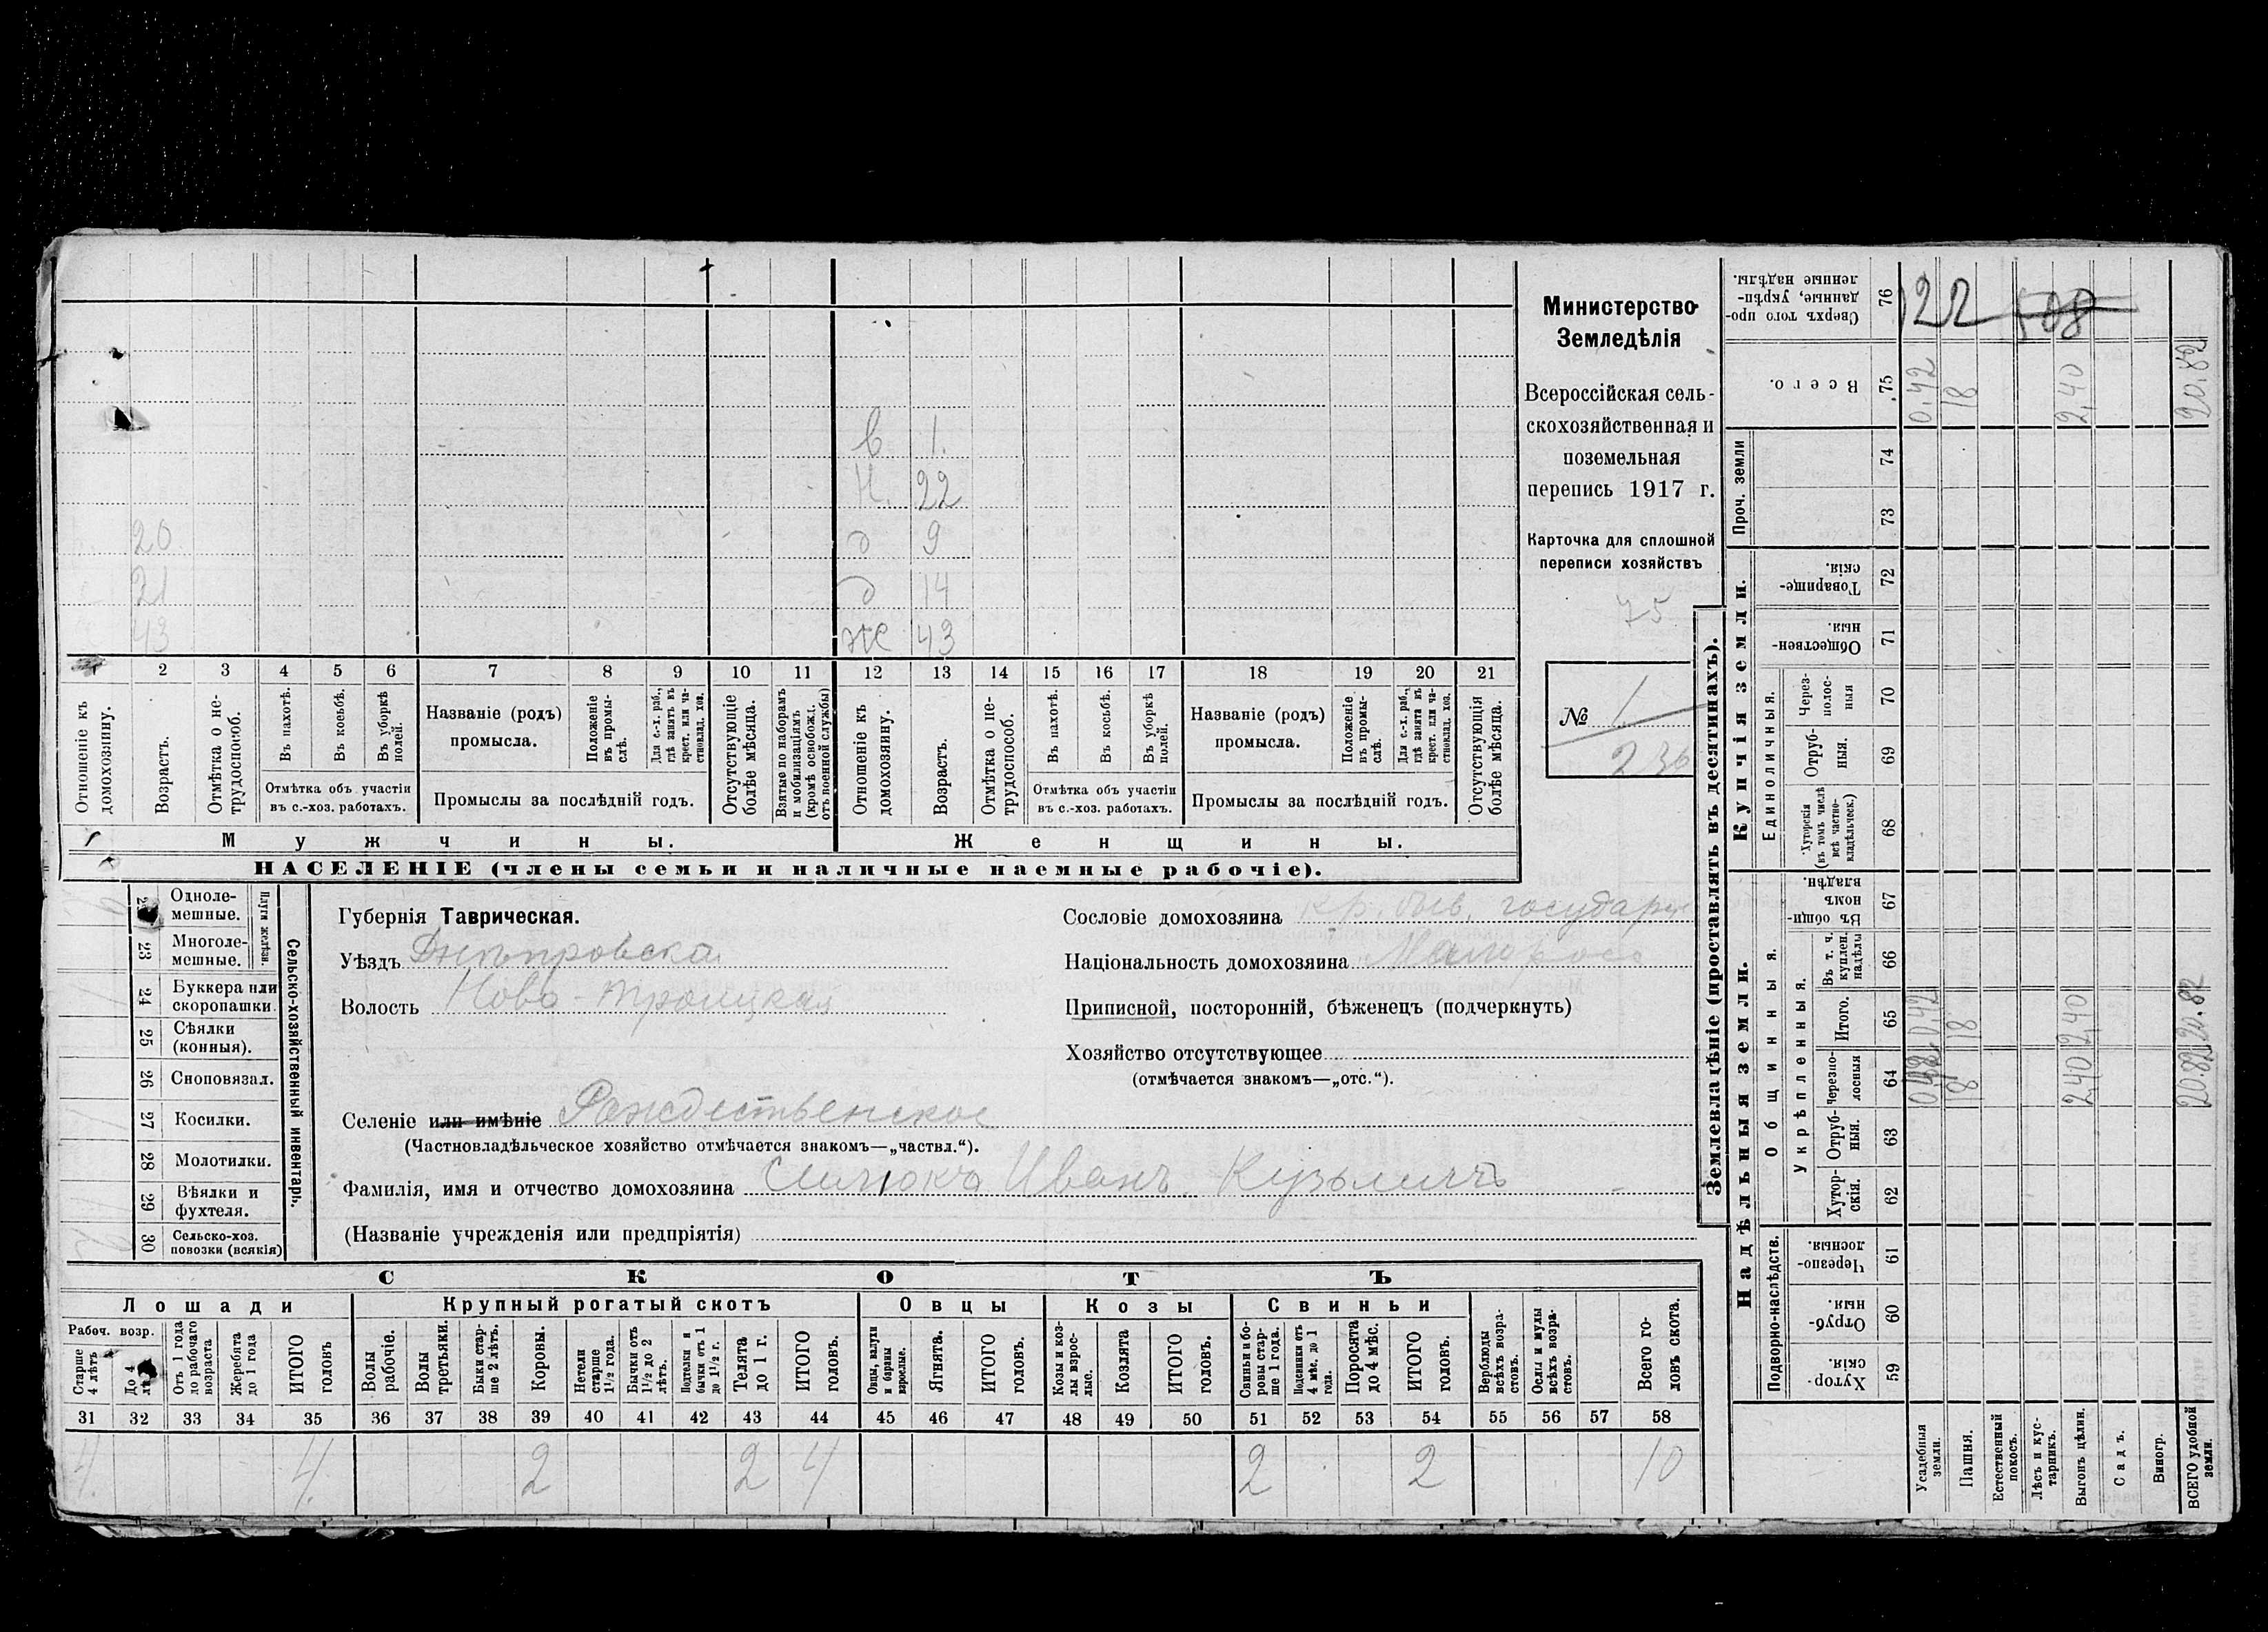 в 1.
н. 22
20 д 9
21 д 14
43 ж 43
1 2 3 4 5 6 7 8 9 10 11 12 13 14 15 16 17 18 19 20 21
Отношеніе къ домохозяину.
Возрастъ.
Отмѣтка о не-трудоспособ.
Въ пахотѣ.
Въ косьбѣ.
Въ уборкѣ полей.
Отмѣтка объ участіи
въ с.-хоз. работахъ.
Названіе (родъ)
промысла.
Положеніе въ промы-слѣ.
Для с.-х. раб., гдѣ занятъ въ крест. или ча-стновлад. хоз.
Промыслы за послѣдній годъ.
Отсутствующіе болѣе мѣсяца.
Взятые по наборамъ и мобилизаціямъ (кромѣ освобожд. отъ военной службы)
Отношеніе къ домохозяину.
Возрастъ.
Отмѣтка о не-трудоспособ.
Въ пахотѣ.
Въ косьбѣ.
Въ уборкѣ полей.
Отмѣтка объ участіи
въ с.-хоз. работахъ.
Названіе (родъ)
промысла.
Положеніе въ промы-слѣ.
Для с.-х. раб., гдѣ занята въ крест. или ча-стновлад. хоз.
Промыслы за послѣдній годъ.
Отсутствующія болѣе мѣсяца.
Мужчины. Женщины.
НАСЕЛЕНІЕ (члены семьи и наличные наемные рабочіе).
Министерство
Земледѣлія
Всероссійская сель-
скохозяйственная и
поземельная
перепись 1917 г.
Карточка для сплошной
переписи хозяйствъ
75
№ 1
236
Сельско-хозяйственный инвентарь.
Плуги желѣзн.
Одноле-мешные.
23 Многоле-мешные.
24 Буккера или скоропашки.
25 Сѣялки (конныя).
26 Сноповязал.
27 Косилки.
28 Молотилки.
29 Вѣялки и фухтеля.
30 Сельско-хоз. повозки (всякія)
Губернія Таврическая.
Уѣздъ Днѣпровскій
Волость Ново-Троицкая
Сословіе домохозяина кр. быв. государ
Національность домохозяина Малоросс
Приписной, посторонній, бѣженецъ (подчеркнуть)
Хозяйство отсутствующее
(отмѣчается знакомъ—„отс.“).
Селеніе или имѣніе Рождественское
(Частновладѣльческое хозяйство отмѣчается знакомъ—„частвл.“).
Фамилія, имя и отчество домохозяина Иванъ Кузьмичъ
(Названіе учрежденія или предпріятія)
СКОТЪ
Лошади Крупный рогатый скотъ Овцы Козы Свиньи
Рабоч. возр.
Старше 4 лѣтъ
До 4
Отъ 1 года до рабочаго возраста
Жеребята до 1 года
ИТОГО головъ
Волы рабочіе.
Волы третьяки.
Быки стар-ше 2 лѣтъ.
Коровы.
Нетели старше 1½ года.
Бычки отъ 1½ до 2 лѣтъ.
Подтелки и бычки отъ 1 до 1½ г.
Телята до 1 г.
ИТОГО головъ.
Овцы, валухи и бараны взрослые.
Ягнята.
ИТОГО головъ.
Козы и коз-лы взрос-лые.
Козлята
ИТОГО головъ.
Свиньи и бо-ровы стар-ше 1 года.
Подсвинки отъ 4 мѣс. до 1 года.
Поросята до 4 мѣс.
ИТОГО головъ.
Верблюды всѣхъ возра-стовъ.
Ослы и мулы всѣхъ возра-стовъ.
Всего го-ловъ скота.
31 32 33 34 35 36 37 38 39 40 41 42 43 44 45 46 47 48 49 50 51 52 53 54 55 56 57 58
4. 4. 2 2 4 2 2 10
Землевладѣніе (проставлять въ десятинахъ).
Надѣльныя земли. Купчія земли. Проч. земли
Подворно-наслѣдств.
Общинныя.
Укрѣпленныя.
Единоличныя.
Хутор-скія. 59
Отруб-ныя. 60
Черезпо-лосныя. 61
Хутор-скія. 62
Отруб-ныя. 63
Черезпо-лосныя 64
Итого. 65
Въ т. ч. куплен. надѣлы 66
Въ общи-номъ владѣн. 67
Хуторскія (въ томъ числѣ всѣ частно-владѣльческ.) 68
Отруб-ныя. 69
Через-полос-ныя 70
Обществен-ныя. 71
Товарище-скія. 72
73
74
Всего. 75
Сверхъ того про-данные, укрѣп-ленные надѣлы. 76
22
Усадебныя земли. 0,42 0,42
Пашня. 18 18 18
Естественный покосъ.
Лѣсъ и кус-тарникъ.
Выгонъ цѣлин. 2,40 2,40 2,40
Садъ.
Виногр.
ВСЕГО удобной земли. 20.82 20.82 20.82